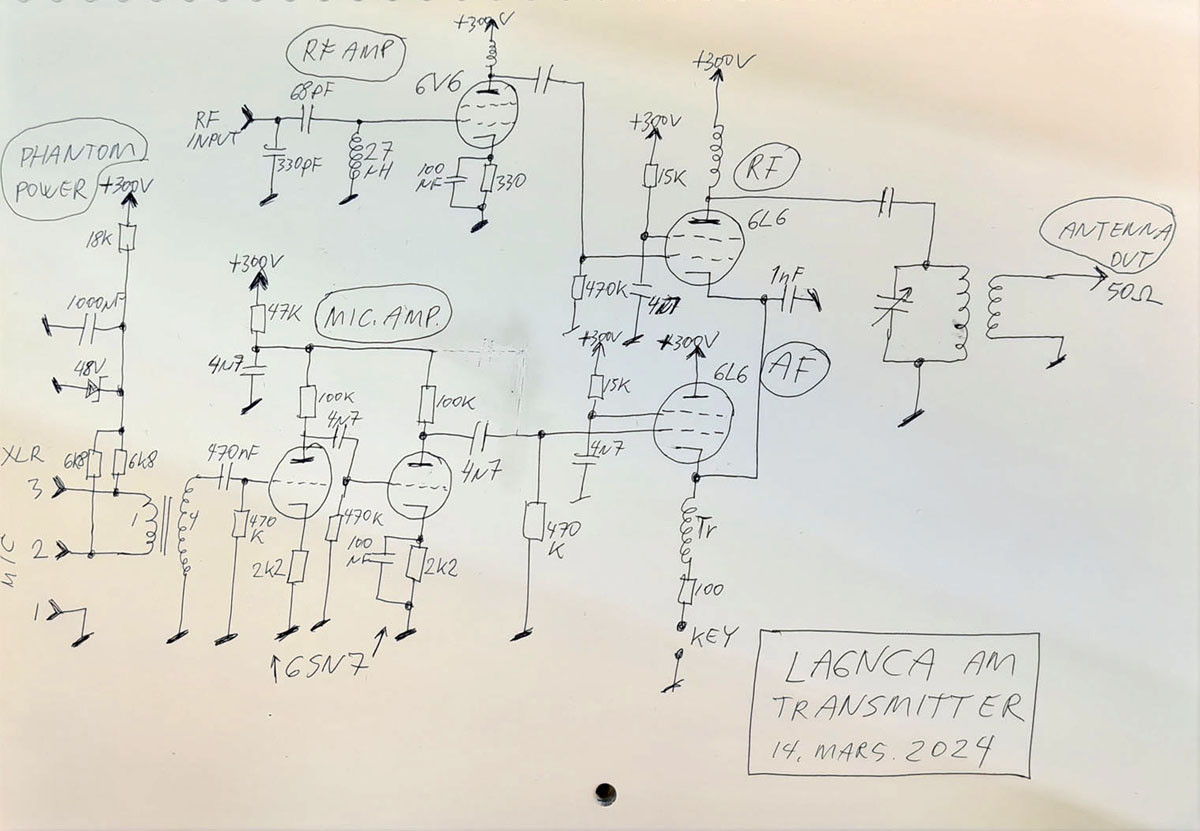 +300V
RF AMP
68pF
6V6
RF
INPUT
330pF
27
µH
100
NF
330
PHANTOM
POWER
+300V
18K
1000µF
48V
XLR
6K8
6K8
3
2
1
MIC
1
4
+300V
47K
MIC. AMP.
4N7
100K
4N7
100K
470nF
4N7
470
K
470K
2K2
100
NF
2K2
6SN7
+300V
RF
+300V
15K
6L6
470K
4N7
1nF
+300V
+300V
15K
6L6
AF
4N7
470
K
Tr
100
KEY
ANTENNA
OUT
50Ω
LA6NCA AM
TRANSMITTER
14. MARS. 2024